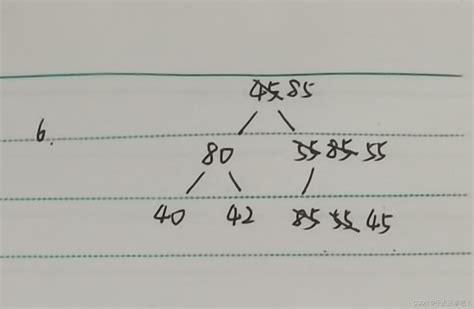 45 85
6.
80 55 85 55
40 42 85 55 45